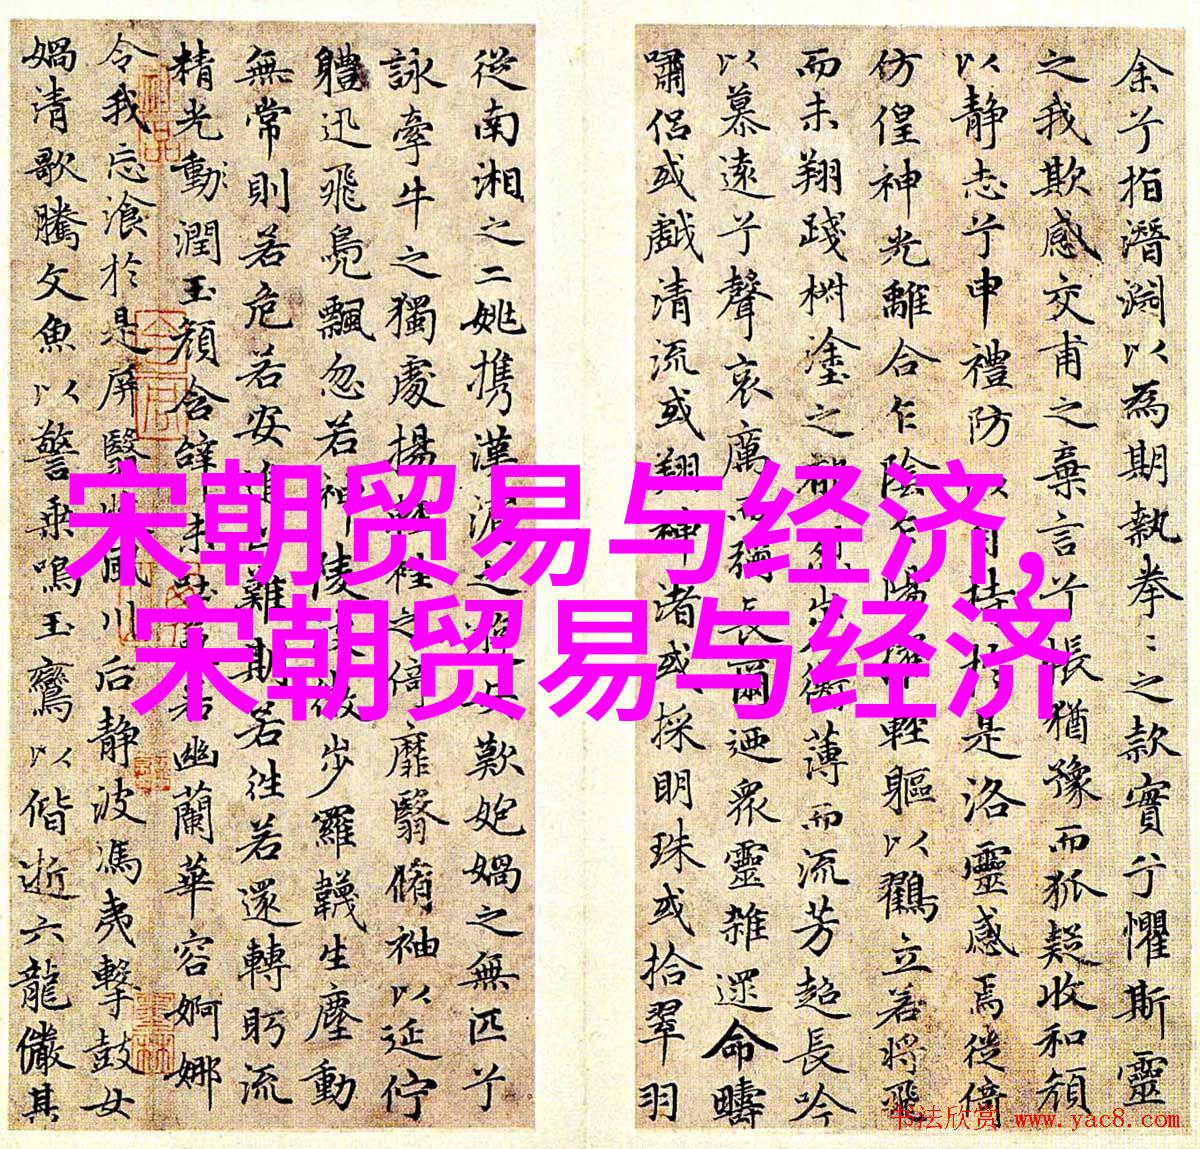 余兮指潛淵以為期執拳〻之款實兮懼斯靈
之我欺感交甫之棄言兮悵猶豫而狐疑收和顏
以靜志兮申禮防以自持於是洛靈感焉徙倚
仿偟神光離合乍陰乍陽擢輕軀以鸖立若將飛
而未翔踐椒塗之郁烈步蘅薄而流芳超長吟
以慕遠兮聲哀厲而彌長爾迺眾靈雜遝命疇
嘯侶或戲清流或翔神渚或採明珠或拾翠羽
從南湘之二姚攜漢濱之游女歎匏媧之無匹兮
詠牽牛之獨處揚輕袿之倚靡翳脩袖以延佇
體迅飛鳧飄忽若神陵波微步羅韈生塵動
無常則若危若安進止難期若往若還轉眄流
精光動潤玉顏含辭未吐氣若幽蘭華容婀娜
令我忘飡於是屏翳收風川后靜波馮夷擊鼓女
媧清歌騰文魚以警乘鳴玉鸞以偕逝六龍儼其
宋朝贸易与经济,
宋朝贸易与经济
书法欣赏 www.yac8.com